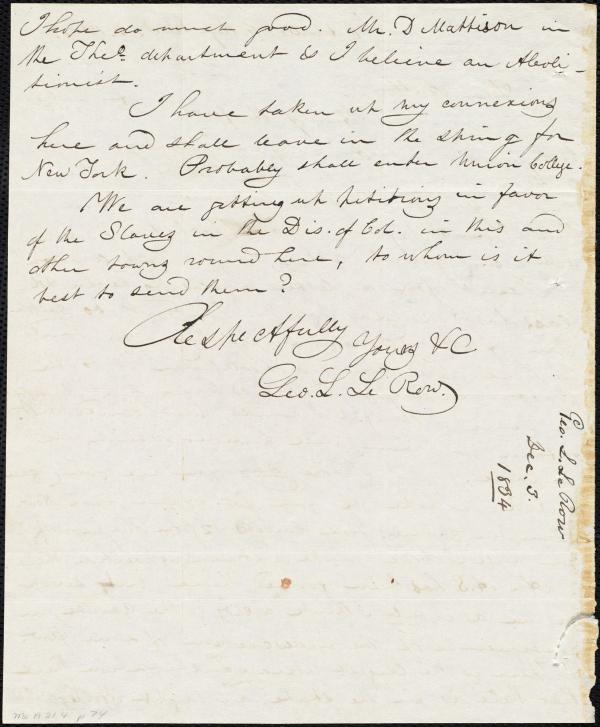 I hope do much good. Mr. D Mattison in
the Theo. department is I believe an Aboli-
tionist.
I have taken up my connexions
here and shall leave in the spring for
New York. Probably shall enter Union College.
We are getting up petitions in favor
of the Slaves in the Dis. of Col. in this and
other towns round here, to whom is it
best to send them?
Respectfully
Yours &C
Geo. L. Le Row.
Geo. L. Le Row
Dec. 3.
1834